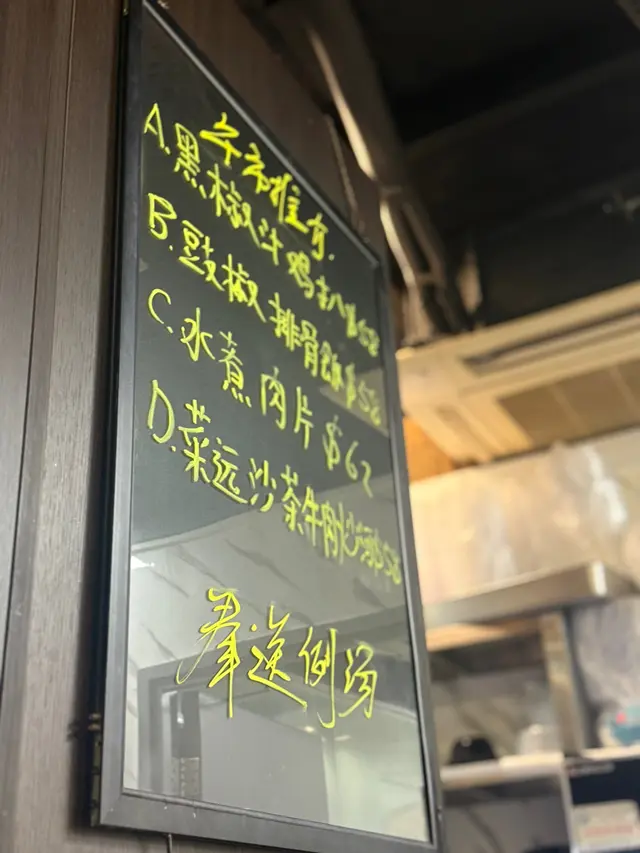 午市推介.
A.黑椒汁鸡扒$58
B.豉椒排骨飯$58
C.水煮肉片$62
D.菜远沙茶牛肉炒河$58
奉送例汤